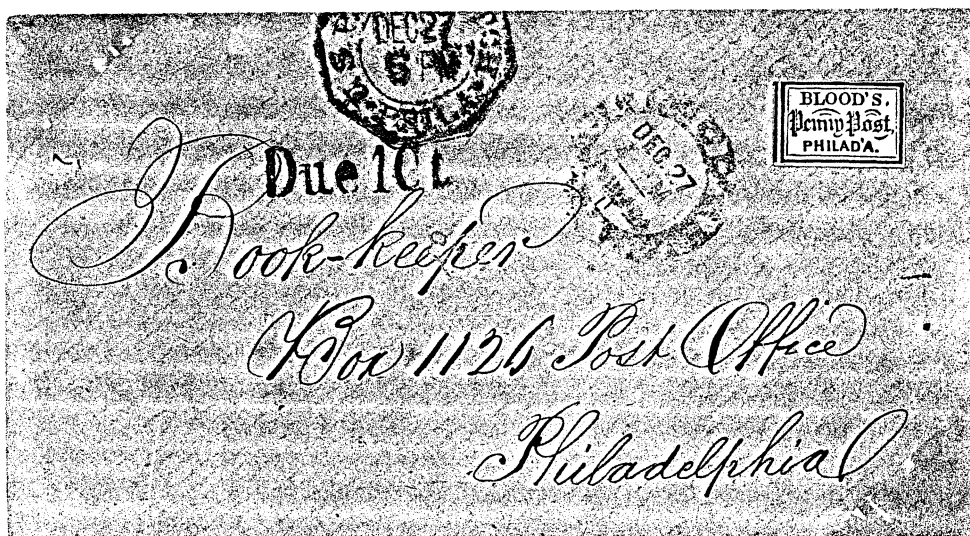 DEC 27
PHILA
BLOOD'S.
Penny Post,
PHILAD'A.
DEC 27
Due 1Ct
Book-keeper
Box 1126 Post Office
Philadelphia